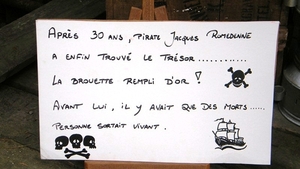 Après 30 ans, pirate Jacques Romedenne
a enfin trouvé le trésor............
La brouette rempli d'or !
Avant lui, il y avait que des morts......
Personne sortait vivant.